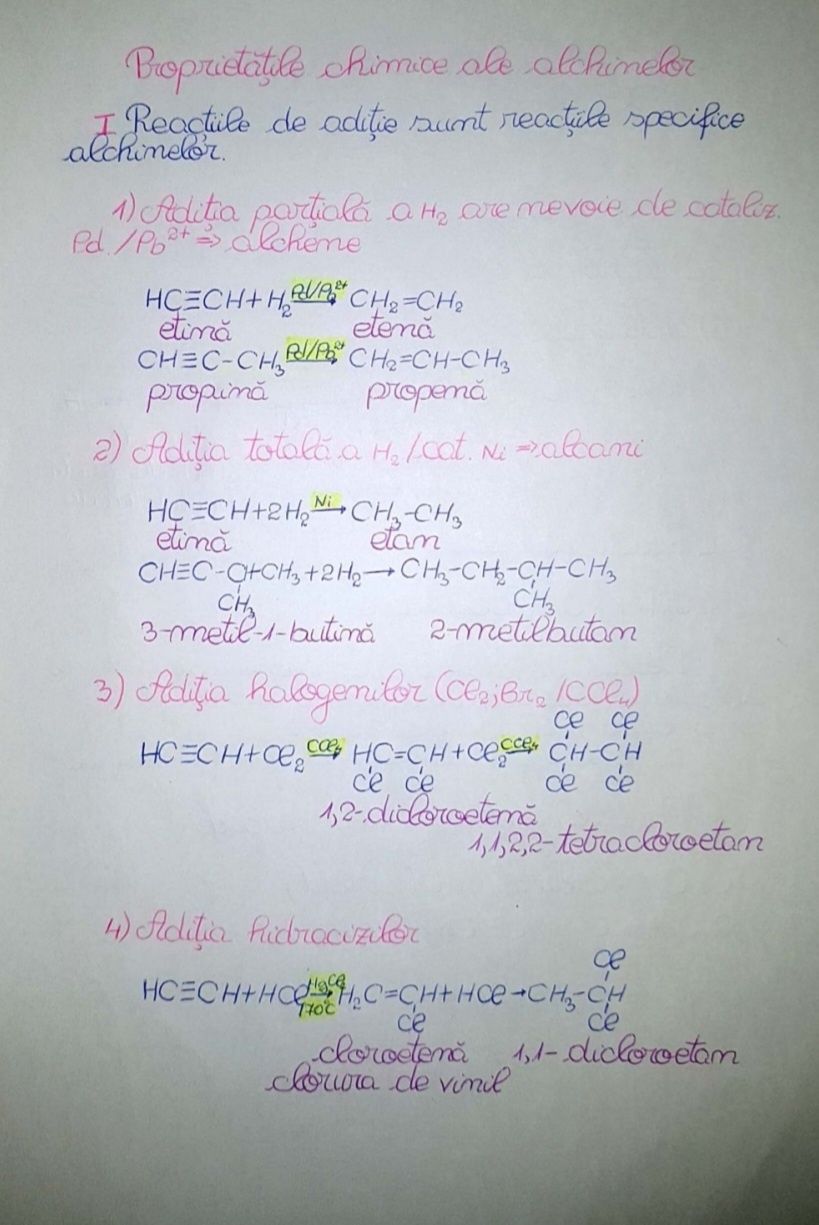 Proprietățile chimice ale alchinelor
I Reacțiile de adiție sunt reacțiile specifice
alchinelor.
1) Adiția parțială a H₂ are nevoie de cataliz.
Pd /Pb²⁺ => alchene
HC≡CH+H₂ Pd/Pb²⁺→ CH₂=CH₂
etină etenă
CH≡C-CH₃ Pd/Pb²⁺→ CH₂=CH-CH₃
propină propenă
2) Adiția totală a H₂ /cat. Ni => alcani
HC≡CH+2H₂ Ni→ CH₃-CH₃
etină etan
CH≡C-CH-CH₃+2H₂→CH₃-CH₂-CH-CH₃
CH₃ CH₃
3-metil-1-butină 2-metilbutan
3) Adiția halogenilor (Cl₂;Br₂ /CCl₄)
Cl Cl
HC≡CH+Cl₂ CCl₄→ HC=CH+Cl₂ CCl₄→ CH-CH
Cl Cl Cl Cl
1,2-dicloroetenă
1,1,2,2-tetracloroetan
4) Adiția hidracizilor
Cl
HC≡CH+HCl HgCl→ H₂C=CH+HCl→CH₃-CH
170°C Cl Cl
cloroetenă 1,1-dicloroetan
clorura de vinil